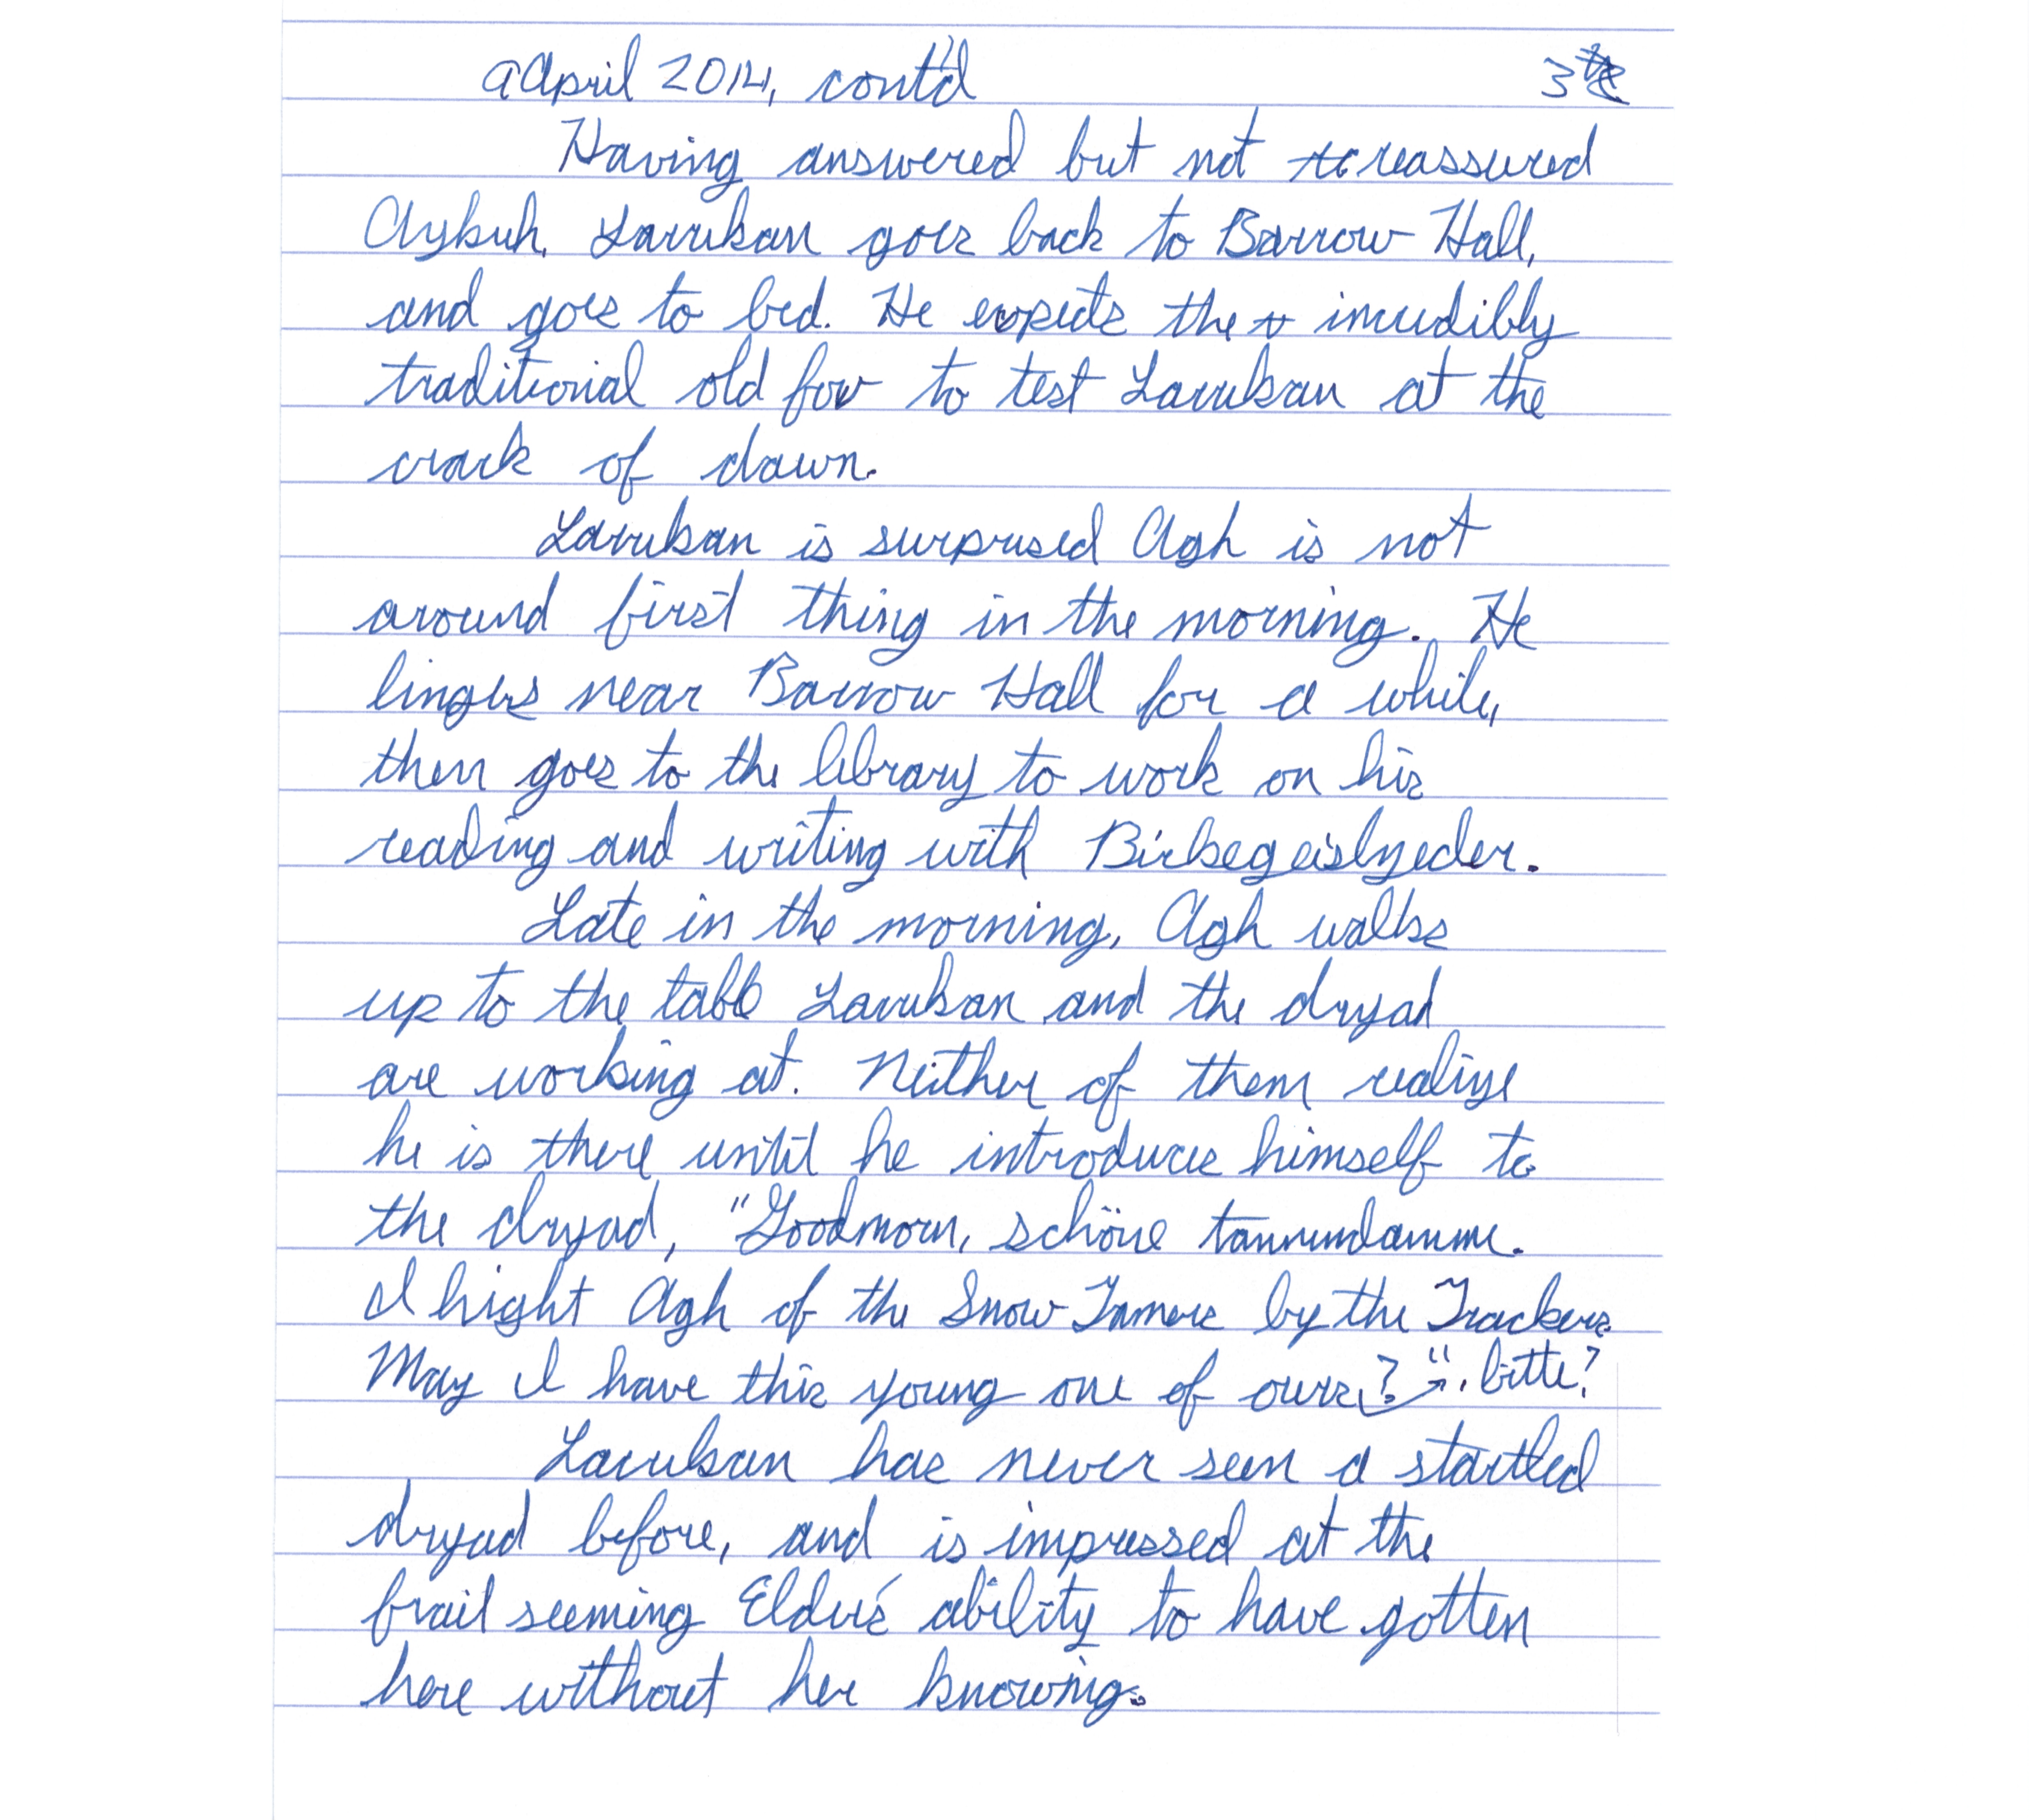 9 April 2014, cont'd 3
Having answered but not reassured
Aybuh, Lavukan goes back to Barrow Hall,
and goes to bed. He expects the incredibly
traditional old fox to test Lavukan at the
crack of dawn.
Lavukan is surprised Agh is not
around first thing in the morning. He
lingers near Barrow Hall for a while,
then goes to the library to work on his
reading and writing with Birkegeislyeder.
Late in the morning, Agh walks
up to the table Lavukan and the dryad
are working at. Neither of them realize
he is there until he introduces himself to
the dryad, "Goodmorn, schöne tannendamme.
I hight Agh of the Snow Tamers by the Trackers.
May I have this young one of ours, bitte?"
Lavukan has never seen a startled
dryad before, and is impressed at the
frail seeming Elder's ability to have gotten
here without her knowing.